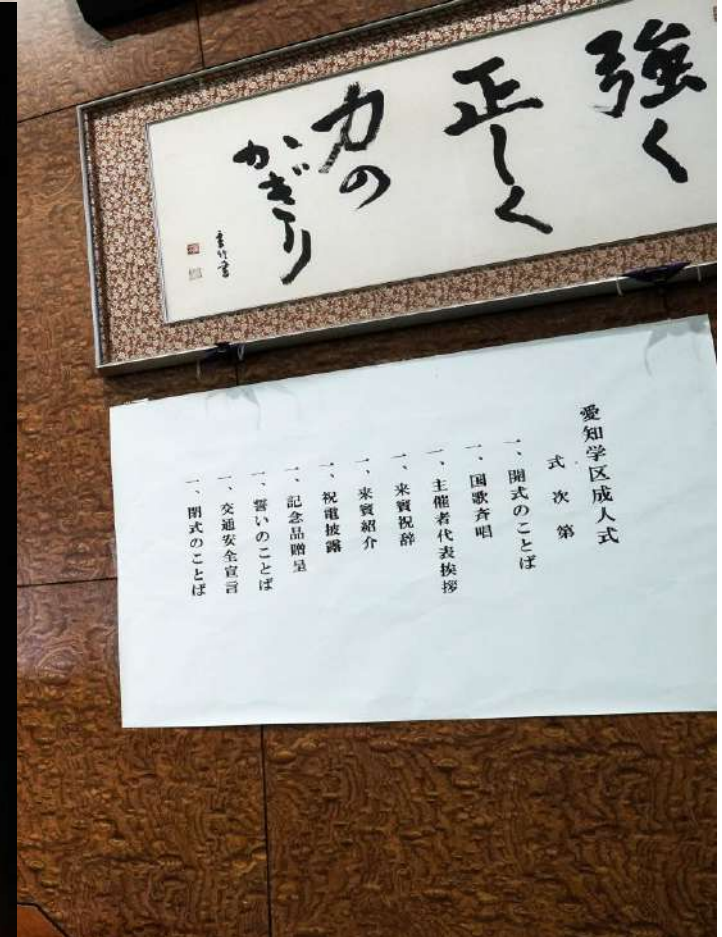 強く
正しく
力の
かぎり
愛知学区成人式
式次第
一、開式のことば
一、国歌斉唱
一、主催者代表挨拶
一、来賓祝辞
一、来賓紹介
一、祝電披露
一、記念品贈呈
一、誓いのことば
一、交通安全宣言
一、閉式のことば